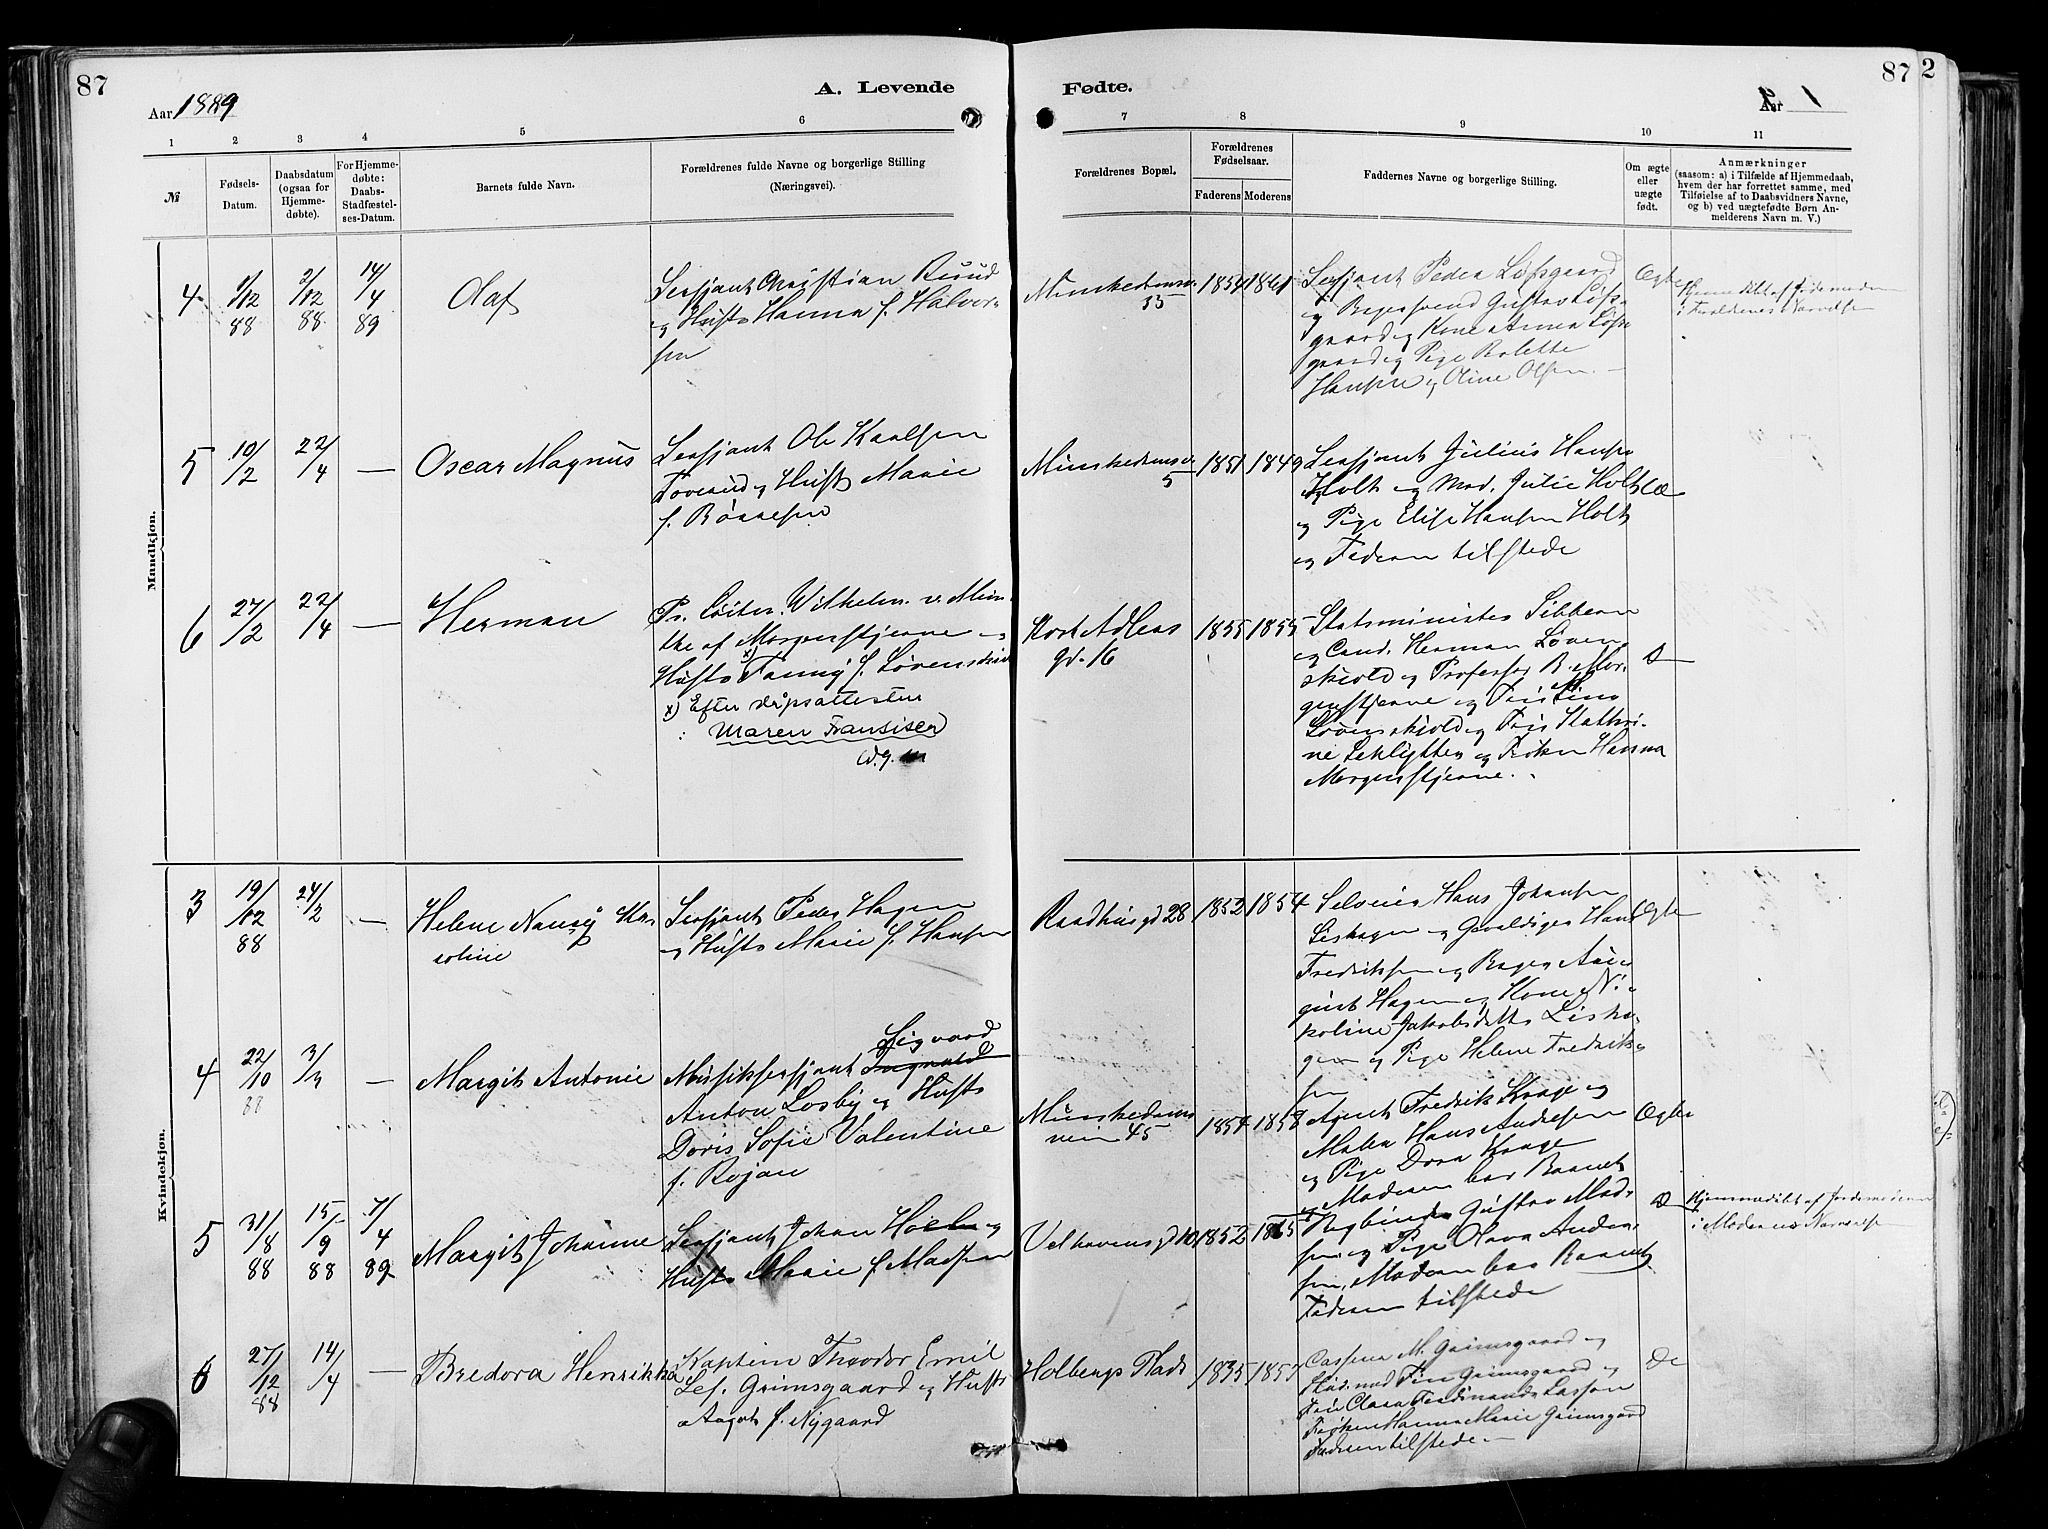 87
Aar 1889
A. Levende
Fødte.
Aar
87
2
1 2 3 4 5 6 7 8 9 10 11
№
Fødsels-
Datum.
Daabsdatum
(ogsaa for
Hjemme-
døbte).
For Hjemme-
døbte:
Daabs-
Stadfæstel-
ses-Datum.
Barnets fulde Navn.
Forældrenes fulde Navne og borgerlige Stilling
(Næringsvei).
Forældrenes Bopæl.
Forældrenes
Fødselsaar.
Faderens Moderens
Faddernes Navne og borgerlige Stilling.
Om ægte
eller
uægte
født.
Anmærkninger
(saasom: a) i Tilfælde af Hjemmedaab,
hvem der har forrettet samme, med
Tilføielse af to Daabsvidners Navne,
og b) ved uægtefødte Børn An-
melderens Navn m. V.)
Mandkjøn.
4
9/12 88
2/12 88
14/4 89
Olaf
Sersjant Christian Ruud
og Hustr Hanna f. Halvor-
sen
Munkedamsv.
35
1854 1861
Sersjant Peder Løfsgaard
og Bagersvend Gustav Løfs-
gaard og Kone Anna Løfs
gaard og Pige Bolette
Hansen og Oline Olsen.
Ægte
Hjemmedøbt af Jordemoderen
5
10/2
22/4
—
Oscar Magnus
Sersjant Ole Karlsen
Toverud og Hustr Marie
f. Børresen
Munkedamsv.
5
1851 1849
Sersjant Julius Hansen
Holt og Mad. Julie Holt
og Pige Elise Hansen Holt
og Faderen tilstede
Æ
6
27/2
22/4
—
Herman
Pr. Løitn. Wilhelm v. Mun-
the af Morgenstjerne og
Hustr x) Fanny f. Løvenskiold
x) Efter dåpsattesten
: Maren Fransisca
Kort Adlers
gd. 16
1855 1855
Statsminister Sibbern
og Cand. Herman Løven
skiold og Professor B. Mor-
genstjerne og Frøken
Løvenskiold og Frøk Kathri-
ne Leklytten og Frøken Hanna
Morgenstjerne.
D
Kvindekjøn.
3
19/12 88
24/2
—
Helene Nancy Ka-
roline
Sersjant Peder Hagen
og Hustr Marie f. Hansen
Raadhusgd 28
1852 1854
Selveier Hans Johansen
Liskagen og Gevaldiger Hans
Fredriksen og Bager Au-
gust Hagen og Kone Ni-
koline Jakobsdatter Liska-
gen og Pige Helene Fredrik-
sen
Ægte
4
22/10 88
3/3
—
Margit Antonie
Sigvard
Musiksersjant Ingvald
Anton Losby og Hustr
Doris Sofie Valentine
f. Rojan
Munkedams
veien 45
1854 1858
Agent Fredrik Krage og
Maler Hans Andresen
og Pige Dora Krage
Moderen bar Barnet
Ægte
5
31/8 88
15/9 88
7/4 89
Margit Johanne
Sersjant Johan Holm og
Hustr Marie f Madsen
Velhavensgd 10
1852 1865
Bogbinder Gustav Mad-
sen og Pige Olava Ander-
sen, Moderen bar Barnet
Faderen tilstede
D
Hjemmedøbt af Jordemoderen
i Moderens Nærvær
6
27/12 88
14/4
—
Bredora Henrikka
Kaptein Theodor Emil
Lef. Grimsgaard og Hustr
Aagot f. Nygaard
Holbergs Plads
1835 1857
Casserer M. Grimsgaard og
Stud. med Finn Grimsgaard og
Fru Clara Ferdinande Lasson
Frøken Hanna Marie Grimsgaard
Faderen tilstede
Do